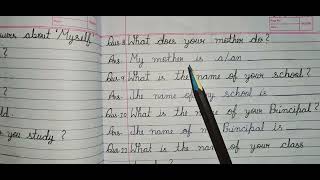 wers about "Myself"
?
?
ld.
s you study ?
Que.8 What does your mother do?
Ans. My mother is a/an
Que.9 What is the name of your school?
Ans. The name of my school is
Que.10 What is the name of your Principal?
Ans. The name of my Principal is
Que.11 What is the name of your class
?